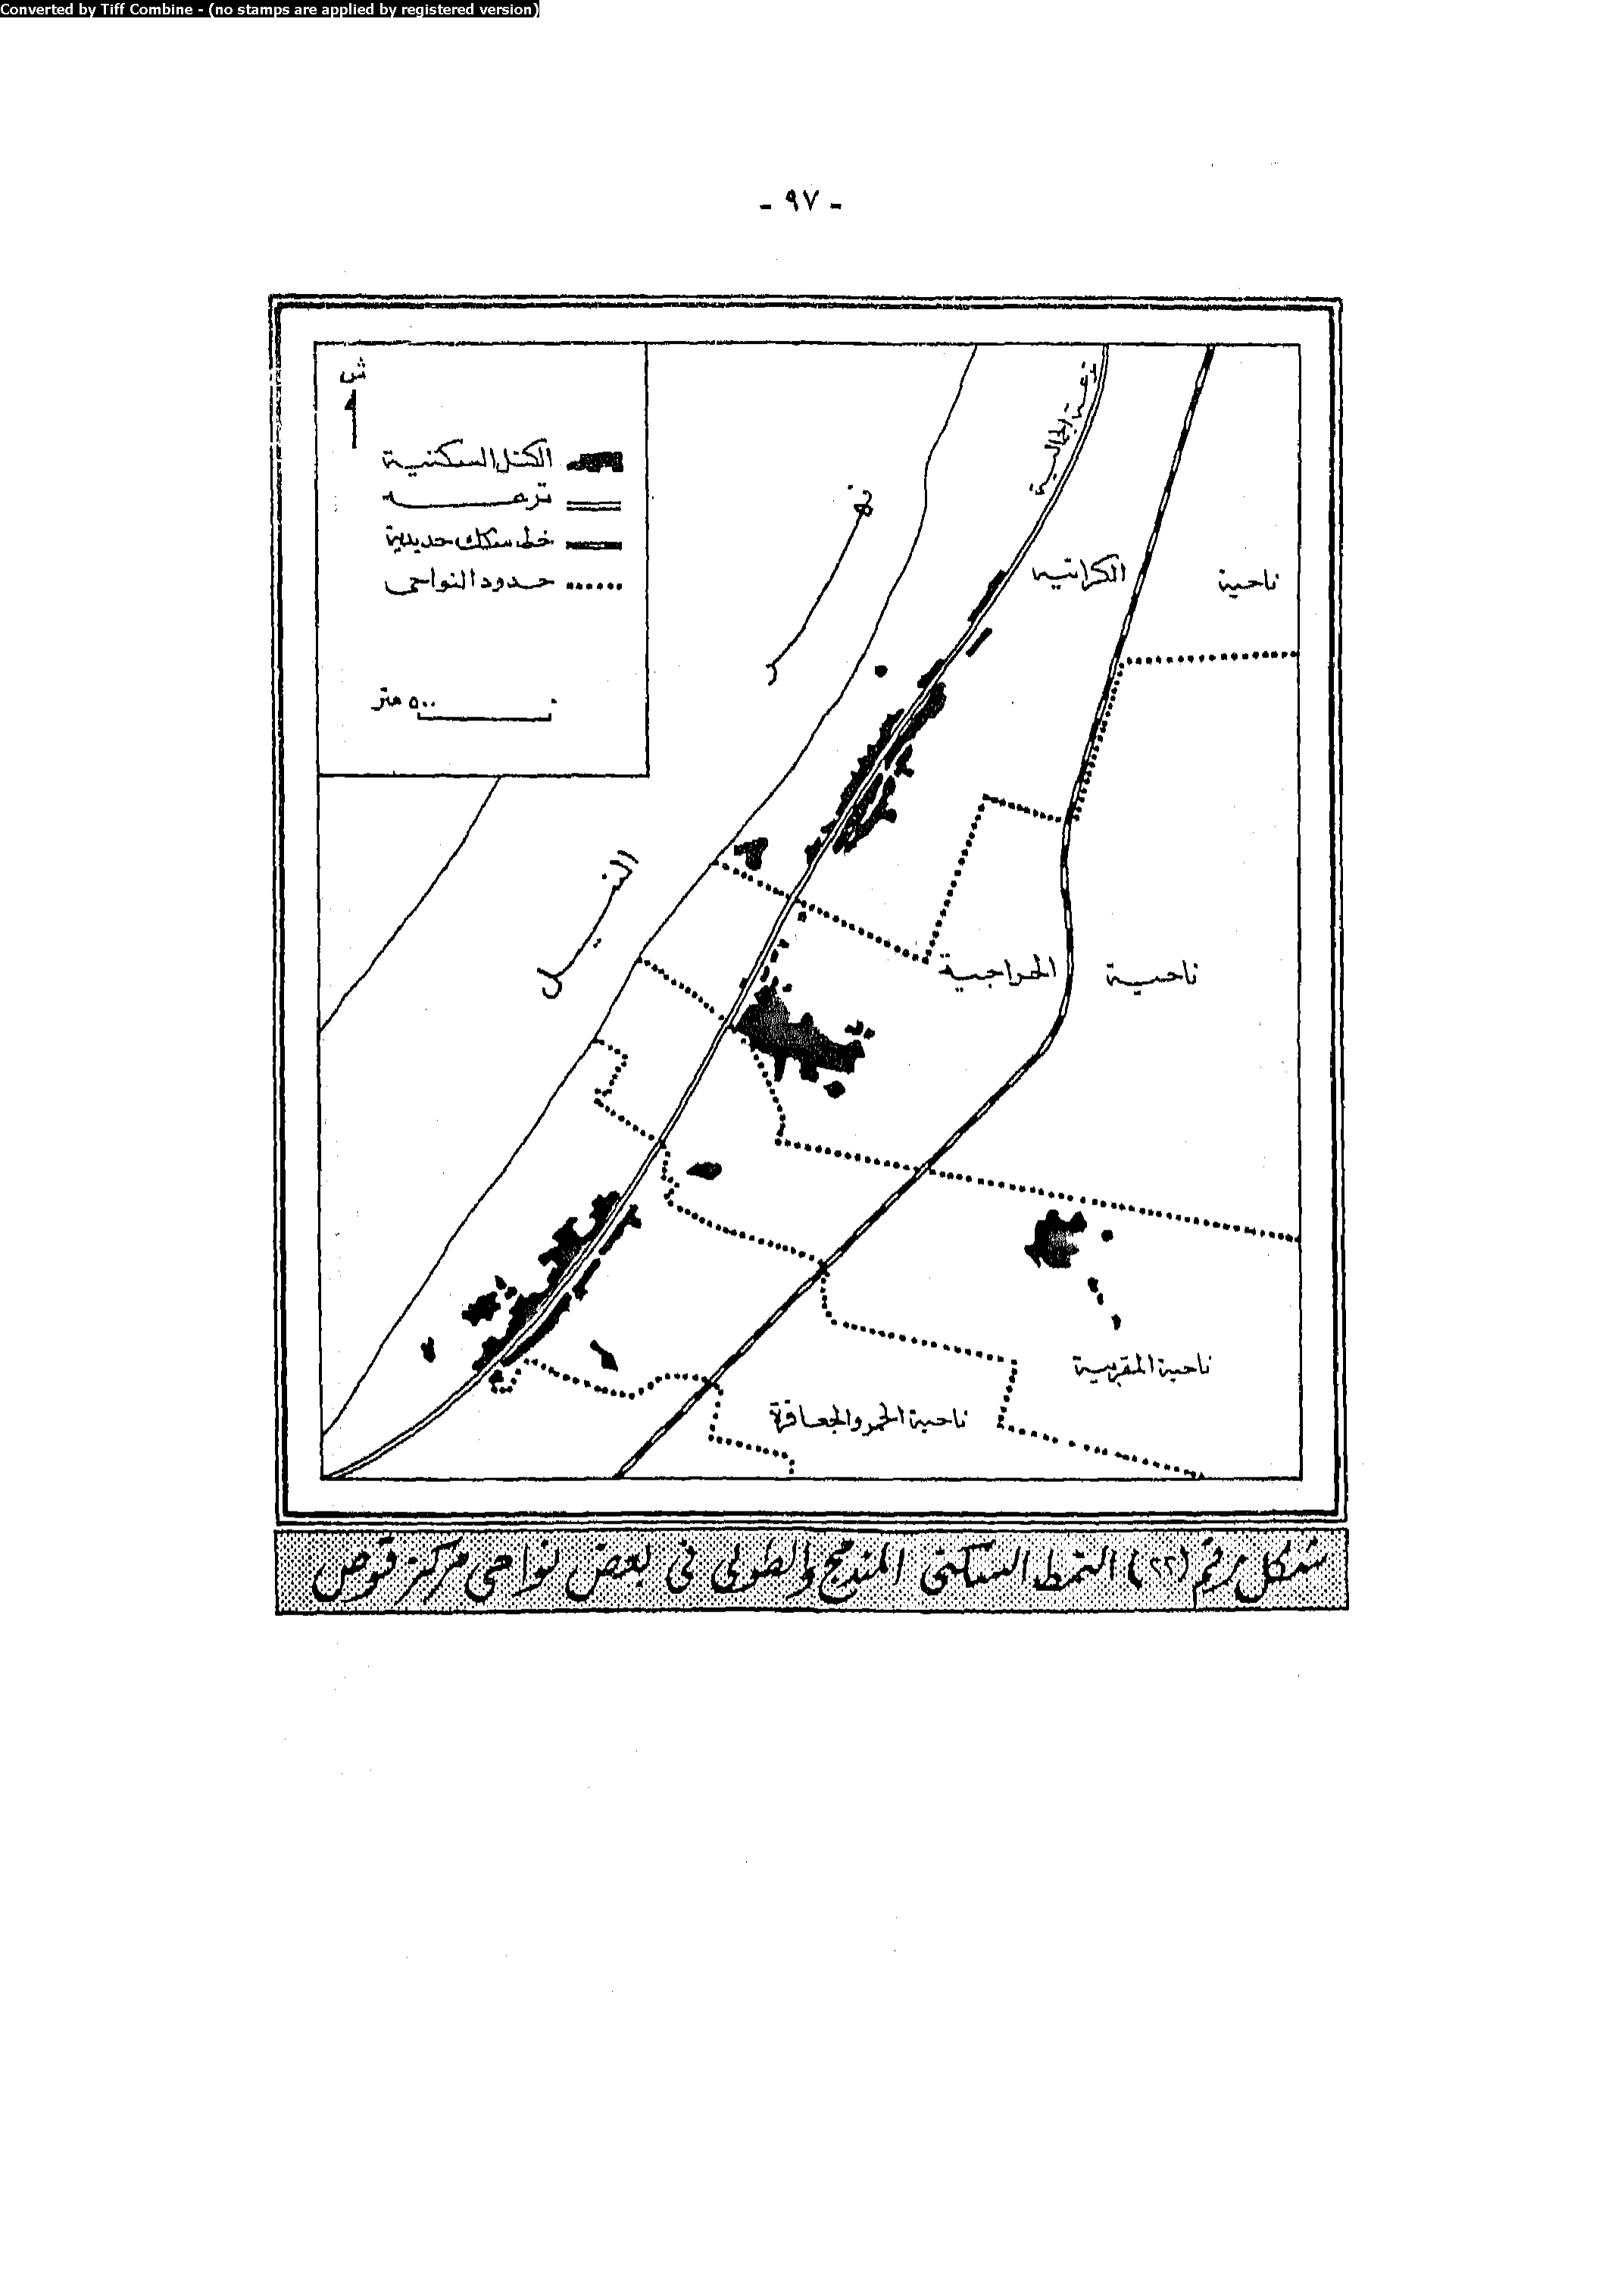 Converted by Tiff Combine - (no stamps are applied by registered version)
- ٩٧ -
ش
الكتل السكنية
ترعه
خط سكك حديدية
حدود النواحى
٥٠٠ متر
نهر
النيل
ناحية
الكراتيه
ناحية
الحراجية
ناحية المقربية
ناحية الحمر والجعافرة
شكل رقم (٢٢) النمط السكنى المندمج والطولى فى بعض نواحى مركز قوص